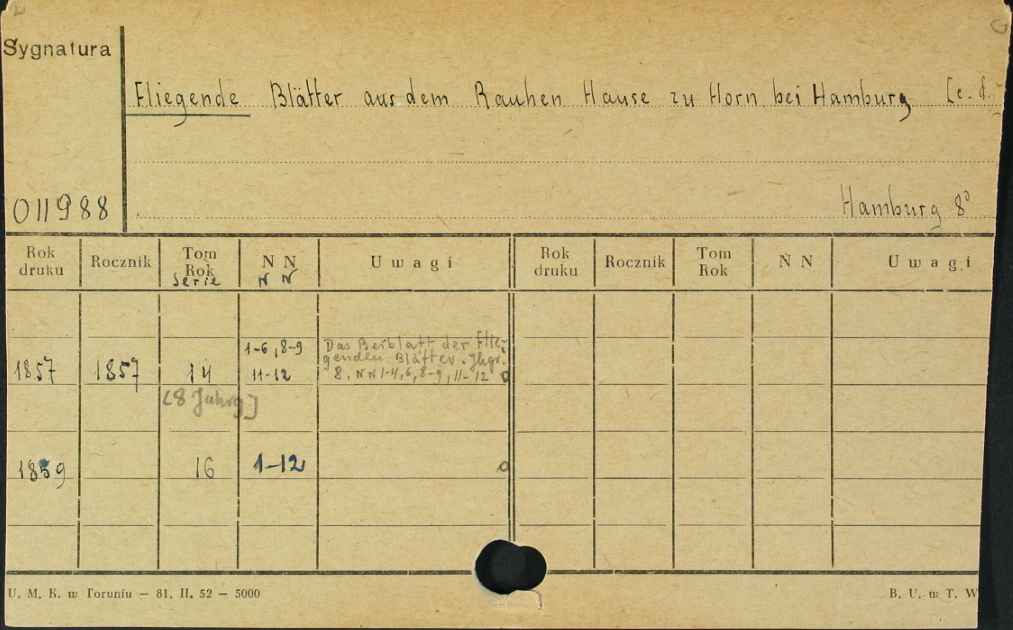 Sygnatura
Fliegende Blätter aus dem Rauhen Hause zu Horn bei Hamburg
011988
Hamburg 8°
Rok druku Rocznik Tom Rok Serie N N N N Uwagi Rok druku Rocznik Tom Rok N N Uwagi
1-6, 8-9 Das Beiblatt der Flie-
genden Blätter. Jhgr.
1857 1857 14 11-12 8. NN 1-4, 6, 8-9, 11-12
[8 Jahrg]
1859 16 1-12
U. M. K. w Toruniu — 81. II. 52 — 5000
B. U. w T. W